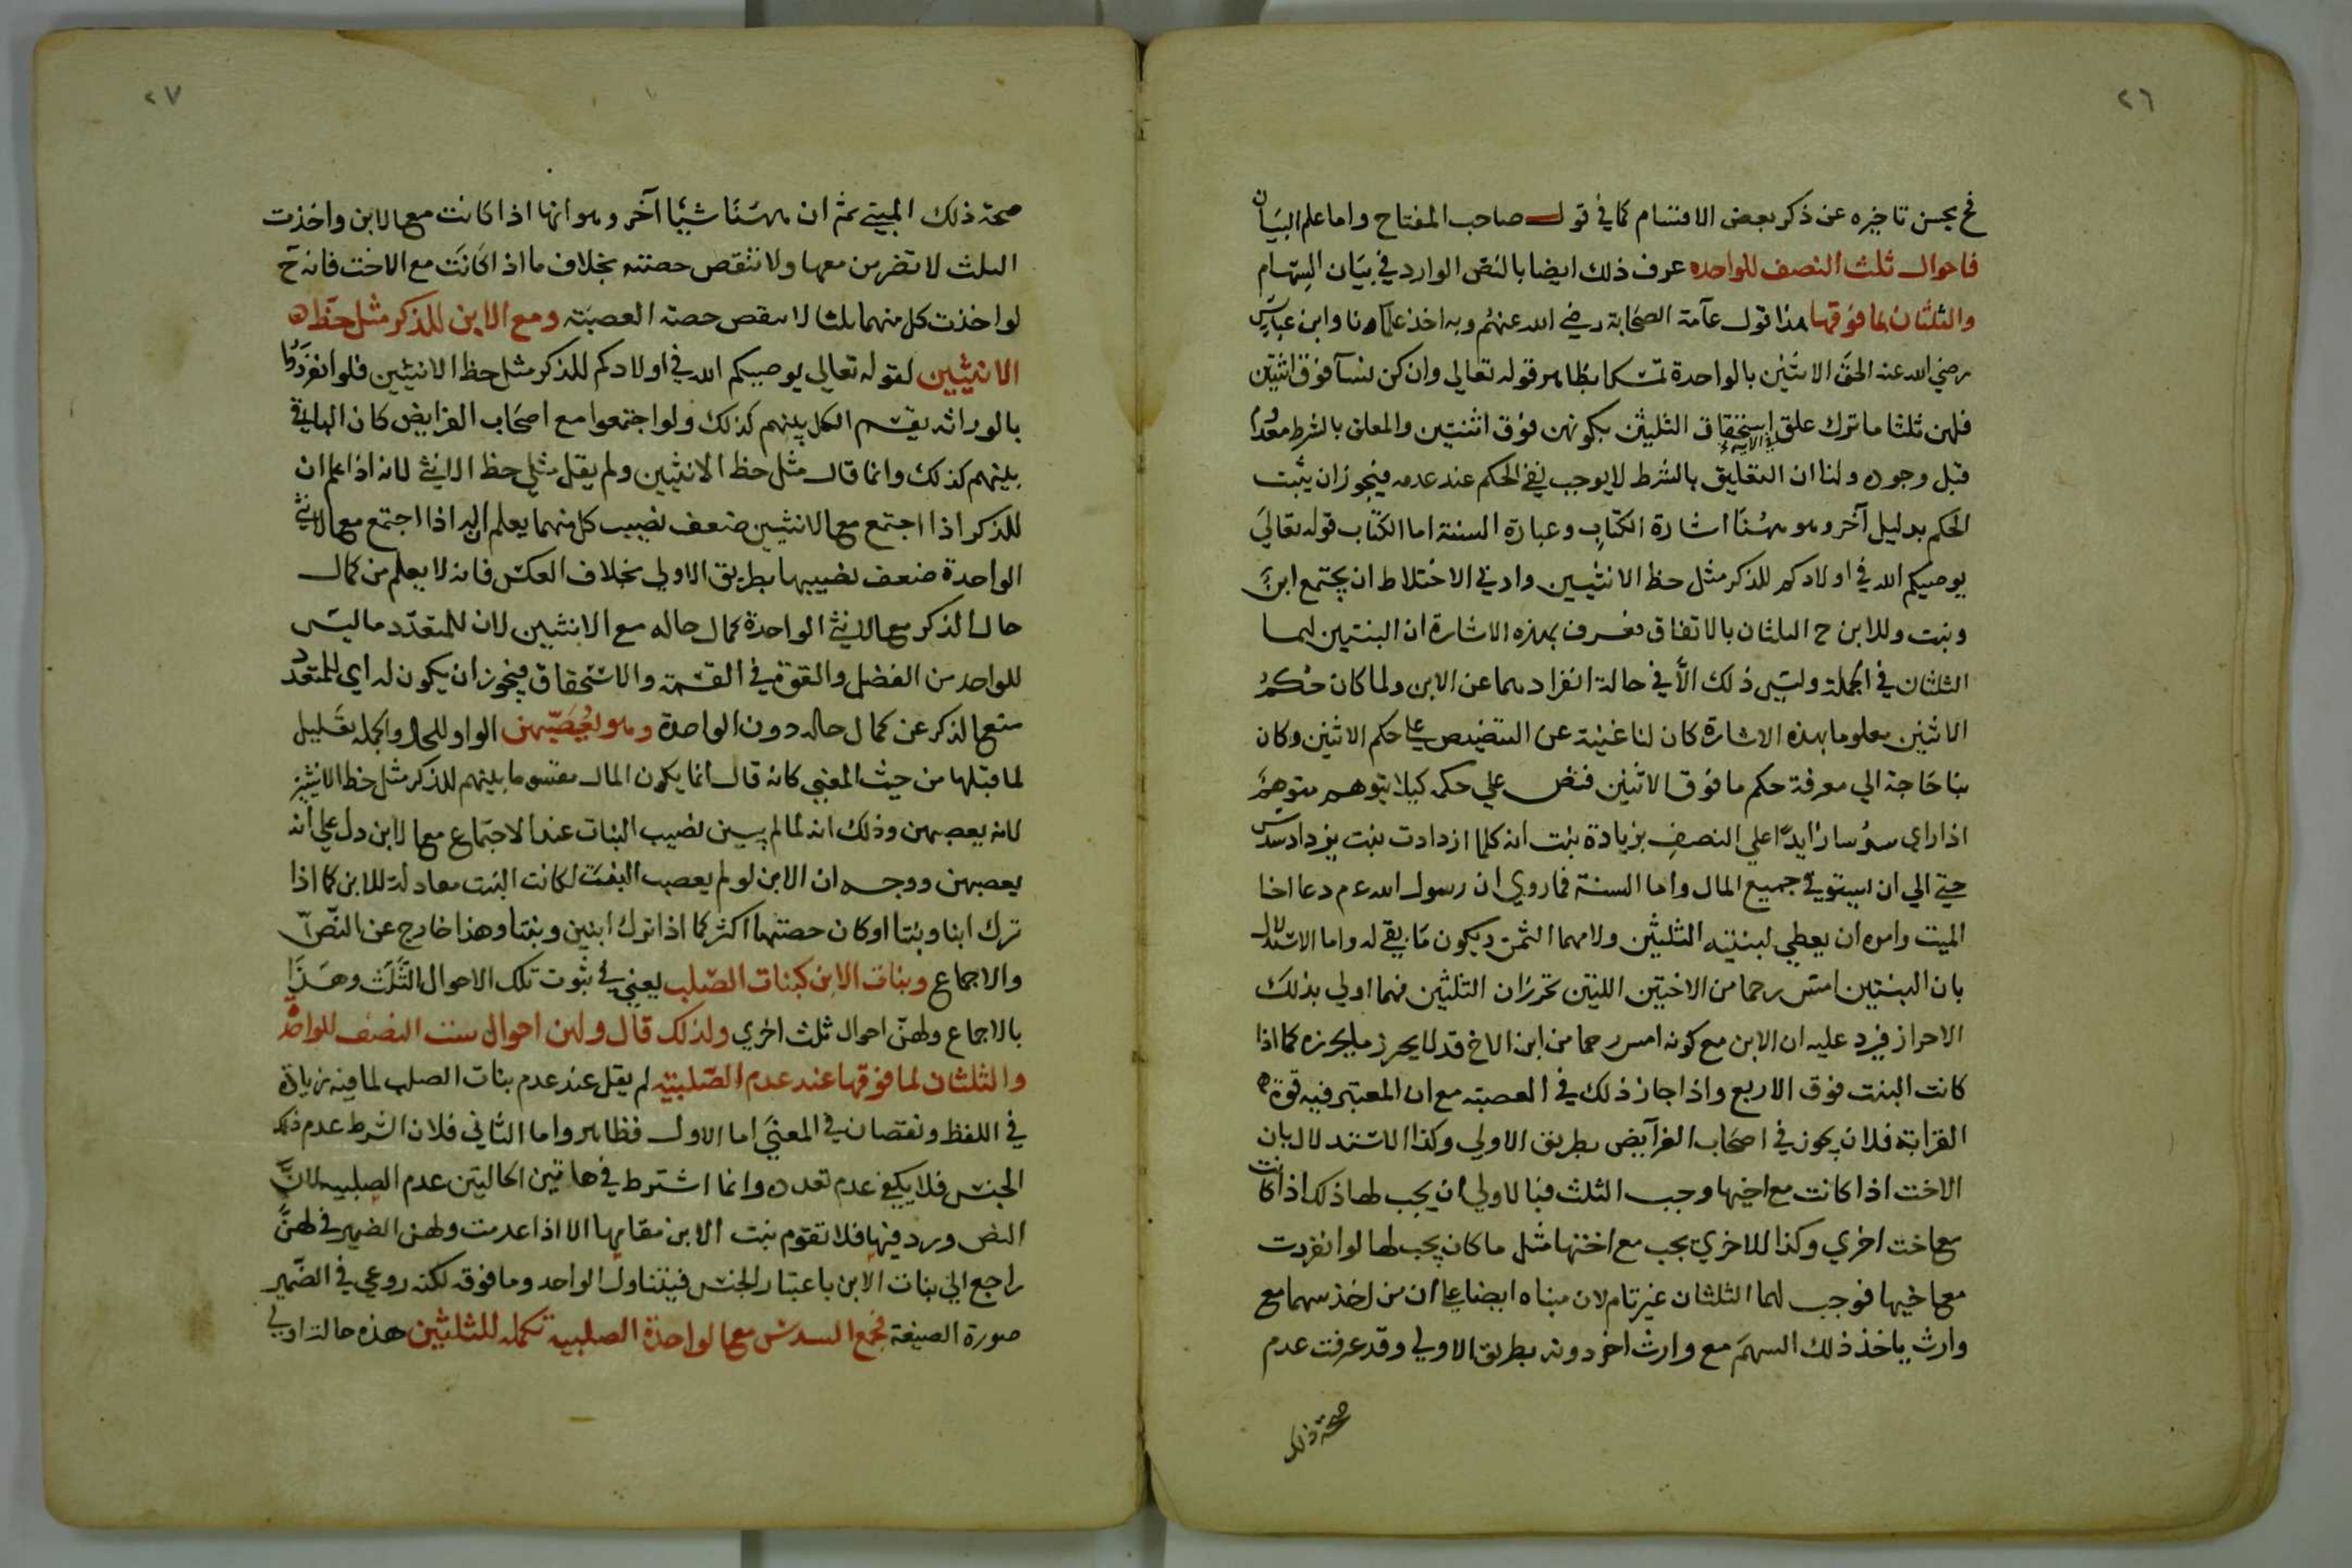 ٢٦
فح يحسن تاخيره عن ذكر بعض الاقسام كما في قول صاحب المفتاح واما علم البيان
فاحوال ثلث النصف للواحده عرف ذلك ايضا بالنص الوارد في بيان السهام
والثلثان لما فوقها هذا قول عآمة الصحابة رضي الله عنهم وبه اخذ علماؤنا وابن عباس
رضي الله عنه الحق الاثنين بالواحدة تمسكا بظاهر قوله تعالي وان كن نسآ فوق اثنتين
فلهن ثلثا ما ترك علق استحقاق الثلثين بكونهن فوق اثنتين والمعلق بالشرط معدوم
في الآية
قبل وجوده ولنا ان التعليق بالشرط لا يوجب نفي الحكم عند عدمه فيجوز ان يثبت
الحكم بدليل آخر وهو ههنا اشارة الكتاب وعبارة السنة اما الكتاب قوله تعالي
يوصيكم الله في اولادكم للذكر مثل حظ الانثيين وادني الاختلاط ان يجتمع ابن
وبنت وللابن ح الثلثان بالاتفاق فعرف بهذه الاشارة ان البنتين لهما
الثلثان في الجملة وليس ذلك الا في حالة انفرادهما عن الابن ولما كان حكم
الاثنين معلوما بهذه الاشارة كان لنا غنية عن التنصيص علي حكم الاثنين وكان
بنا حاجة الي معرفة حكم ما فوق الاثنين فنص علي حكمه كيلا يتوهم متوهم
اذا راي سدسا زايدا علي النصف بزيادة بنت انه كلما ازدادت بنت يزداد سدس
حتي الي ان يستوفي جميع المال واما السنة فما روي ان رسول الله عم دعا اخا
الميت وامره ان يعطي لبنتيه الثلثين ولامهما الثمن ويكون ما بقي له واما الاستدلال
بان البنتين امس رحما من الاختين اللتين تحرزان الثلثين فهما اولي بذلك
الاحراز فيرد عليه ان الابن مع كونه امس رحما من ابن الاخ قد لا يحرز ما يحرزه كما اذا
كانت البنت فوق الاربع واذا جاز ذلك في العصبته مع ان المعتبر فيه قوة
القرابة فلان يجوز في اصحاب الفرآيض بطريق الاولي وكذا الاستدلال بان
الاخت اذا كانت مع اخيها وجب الثلث فبالاولي ان يجب لها ذلك اذا كانت
مع اخت اخري وكذا للاخري يجب مع اختها مثل ما كان يجب لها لو انفردت
مع اخيها فوجب لهما الثلثان غير تام لان مبناه ايضا علي ان من اخذ سهما مع
وارث ياخذ ذلك السهم مع وارث اخر دونه بطريق الاولي وقد عرفت عدم
صحة ذلك
٢٧
صحة ذلك المبني ثم ان ههنا شيئا آخر وهو انها اذا كانت مع الابن واخذت
الثلث لا تضر من معها ولا تنقص حصته بخلاف ما اذا كانت مع الاخت فانه ح
لو اخذت كل منهما ثلثا لا ينقص حصة العصبته ومع الابن للذكر مثل حظ
الانثيين لقوله تعالي يوصيكم الله في اولادكم للذكر مثل حظ الانثيين فلو انفردوا
بالوراثه يقسم الكل بينهم كذلك ولو اجتمعوا مع اصحاب الفرايض كان الباقي
بينهم كذلك وانما قال مثل حظ الانثيين ولم يقل مثلي حظ الانثي لانه اذا علم ان
للذكر اذا اجتمع مع الانثيين ضعف نصيب كل منهما يعلم ان له اذا اجتمع مع الانثي
الواحدة ضعف نصيبها بطريق الاولي بخلاف العكس فانه لا يعلم من كمال
حال الذكر مع الانثي الواحدة كمال حاله مع الانثيين لان للمتعدد ما ليس
للواحد من الفضل والقوة في القسمة والاستحقاق فيجوز ان يكون له اي للمتعدد
منع الذكر عن كمال حاله دون الواحدة وهو يُعَصِّبهن الواو للحال والجملة تعليل
لما قبلها من حيث المعني كانه قال انما يكون المال مقسوما بينهم للذكر مثل حظ الانثيين
لانه يعصبهن وذلك انه لما لم يبين نصيب البنات عند الاجتماع مع الابن دل علي انه
يعصبهن ووجه ان الابن لو لم يعصب البنت لكانت البنت معادلة للابن كما اذا
ترك ابنا وبنتا او كان حصتها اكثر كما اذا ترك ابنين وبنتا وهذا خارج عن النص
والاجماع وبنات الابن كبنات الصلب يعني في ثبوت تلك الاحوال الثلث وهذا
بالاجماع ولهن احوال ثلث اخري ولذلك قال ولهن احوال ست النصف للواحدة
والثلثان لما فوقها عند عدم الصلبيته لم يقل عند عدم بنات الصلب لما فيه زيادة
في اللفظ ونقصان في المعني اما الاول فظاهر واما الثاني فلان الشرط عدم ذلك
الجنس فلا يكفي عدم تعدده وانما اشترط في هاتين الحالتين عدم الصلبيه لان
النص ورد فيها فلا تقوم بنت الابن مقامها الا اذا عدمت ولهن الضمير في لهن
راجع الي بنات الابن باعتبار الجنس فيتناول الواحد وما فوقه لكنه روعي في الضمير
صورة الصيغة فجمع السدس مع الواحدة الصلبية تكمله للثلثين هذه حالة اولي